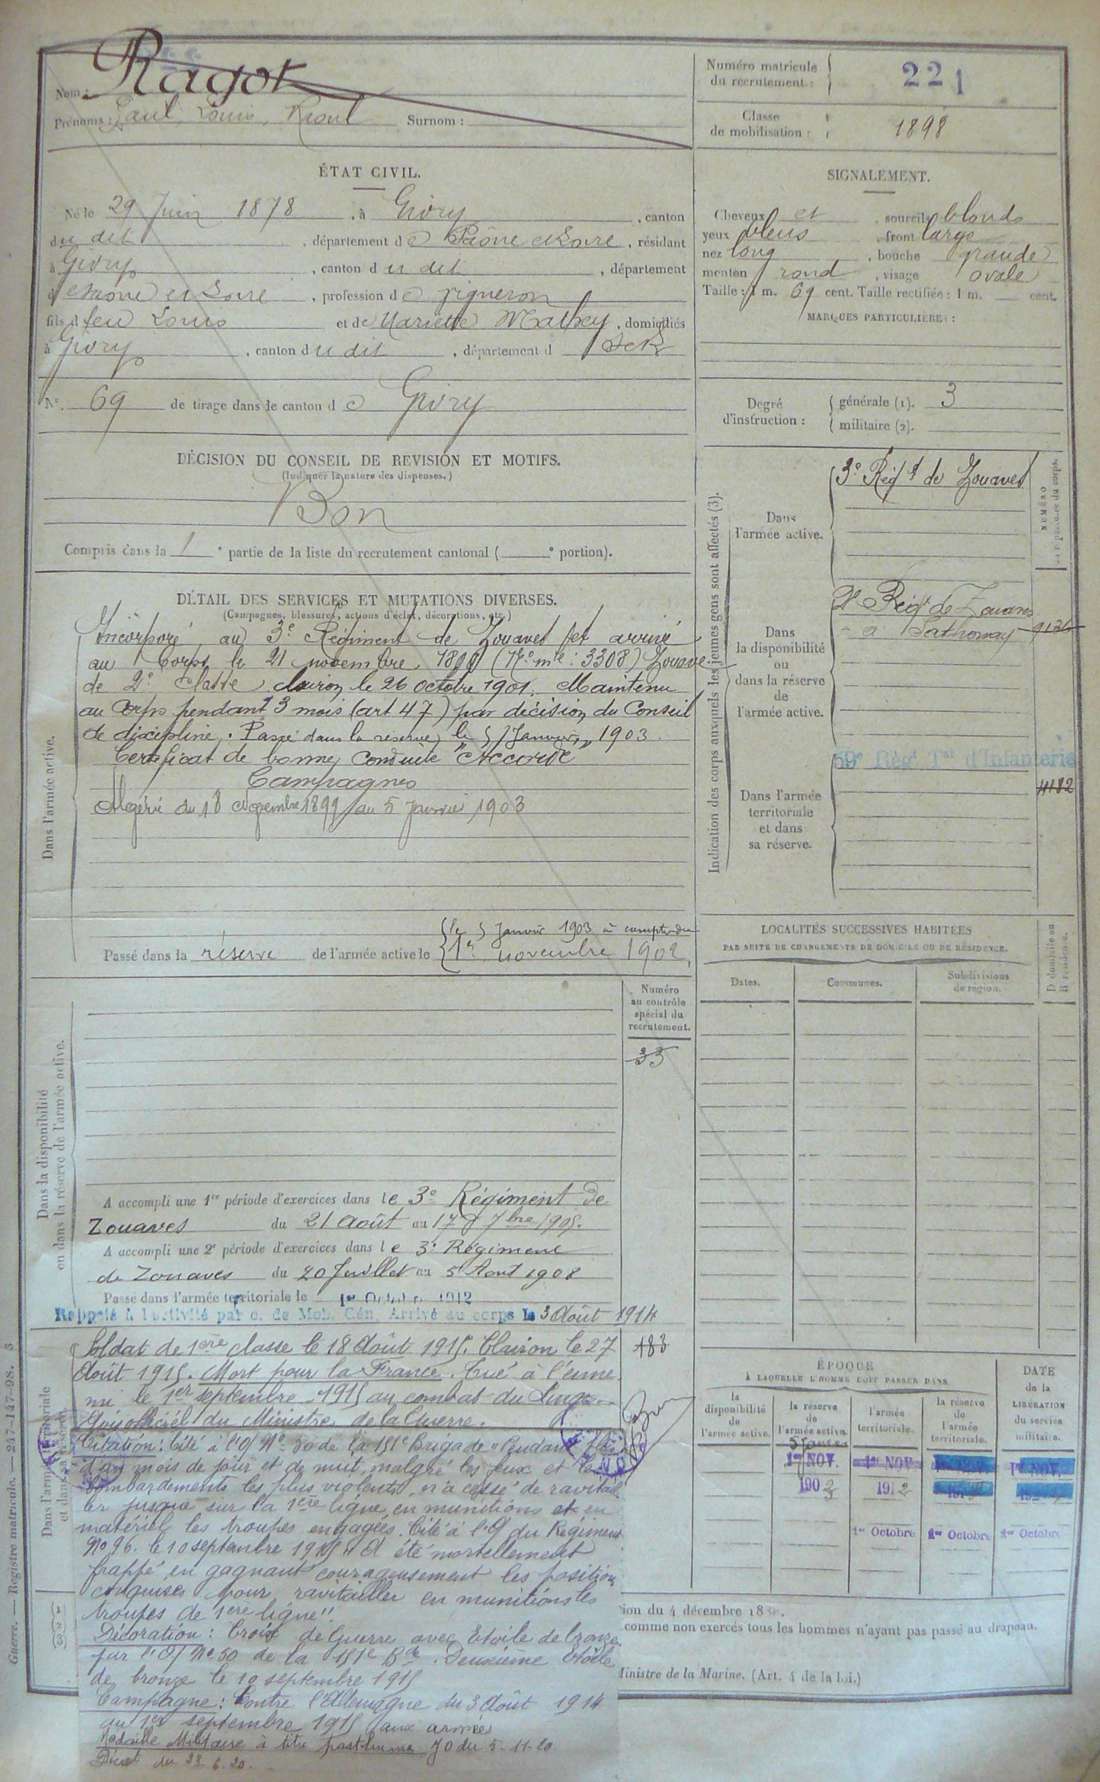 Nom : Ragot
Prénoms : Paul, Louis, Raoul Surnom :
Numéro matricule du recrutement : 221
Classe de mobilisation : 1898
ÉTAT CIVIL.
Né le 29 Juin 1878, à Givry, canton
du dit, département de Saône et Loire, résidant
à Givry, canton du dit, département
de Saône et Loire, profession de vigneron
fils de feu Louis et de Mariette Mathey, domiciliés
à Givry, canton du dit, département d S et L
N° 69 de tirage dans le canton de Givry
SIGNALEMENT.
Cheveux et sourcils blonds
yeux bleus, front large
nez long, bouche grande
menton rond, visage ovale
Taille : 1 m. 69 cent. Taille rectifiée : 1 m. cent.
MARQUES PARTICULIÈRES :
Degré d'instruction : générale (1). 3
militaire (2).
DÉCISION DU CONSEIL DE REVISION ET MOTIFS.
(Indiquer la nature des dispenses.)
Bon
Compris dans la 1e partie de la liste du recrutement cantonal ( e portion).
DÉTAIL DES SERVICES ET MUTATIONS DIVERSES.
(Campagnes, blessures, actions d'éclat, décorations, etc.)
Dans l'armée active.
Incorporé au 3e Régiment de Zouaves et arrivé
au Corps le 21 novembre 1899 (No mle : 3308) Zouave
de 2e classe, clairon le 26 octobre 1901. Maintenu
au corps pendant 3 mois (art 47) par décision du Conseil
de discipline. Passé dans la réserve le 5 Janvier 1903.
Certificat de bonne conduite "Accordé"
Campagnes
Algérie du 18 novembre 1899 au 5 Janvier 1903
Passé dans la réserve de l'armée active le
le 5 Janvier 1903 à compter du
1er novembre 1902
Indication des corps auxquels les jeunes gens sont affectés (3).
NUMÉRO
Dans l'armée active.
3e Régt de Zouaves
Dans la disponibilité ou dans la réserve de l'armée active.
Régt de Zouaves
à Sathonay
Dans l'armée territoriale et dans sa réserve.
59e Régt Tal d'Infanterie
LOCALITÉS SUCCESSIVES HABITÉES
PAR SUITE DE CHANGEMENTS DE DOMICILE OU DE RÉSIDENCE.
Dates. Communes. Subdivisions de région. D domicile ou R résidence.
Dans la disponibilité ou dans la réserve de l'armée active.
Numéro au contrôle spécial du recrutement.
33
A accompli une 1re période d'exercices dans le 3e Régiment de
Zouaves du 21 Août au 17 7bre 1905.
A accompli une 2e période d'exercices dans le 3e Régiment
de Zouaves du 20 Juillet au 5 Août 1908
Passé dans l'armée territoriale le 1er Octobre 1912
Rappelé à l'activité par o. de Mob. Gén. Arrivé au corps le 3 Août 1914
Dans l'armée territoriale
483
Soldat de 1ère classe le 18 Août 1915. Clairon le 27
Août 1915. Mort pour la France. Tué à l'enne
mi le 1er septembre 1915 au combat du Linge.
Avis officiel du Ministre de la Guerre.
Citation : Cité à l'O/ No 50 de la 151e Brigade "Pendant
d'un mois de jour et de nuit, malgré les feux et les
bombardements les plus violents, n'a cessé de ravitail
ler jusque sur la 1ère ligne en munitions et en
matériel les troupes engagées. Cité à l'O/ du Régiment
No 96. le 10 septembre 1915 "A été mortellement
frappé en gagnant courageusement les positions
conquises pour ravitailler en munitions les
troupes de 1ère ligne".
Décoration : Croix de Guerre avec Etoile de bronze
sur l'O/ No 50 de la 151e Bde. Deuxième étoile
de bronze le 10 septembre 1915
Campagne : Contre l'Allemagne du 3 Août 1914
au 1er septembre 1915 (aux armées)
Médaille Militaire à titre posthume JO du 5-11-20
Décret du 23.6.20.
ÉPOQUE
À LAQUELLE L'HOMME DOIT PASSER DANS
la disponibilité de l'armée active. la réserve de l'armée active. l'armée territoriale. la réserve de l'armée territoriale.
DATE de la LIBÉRATION du service militaire.
5 Janvier
1er NOV. 1er NOV. 1er NOV. 1er NOV.
1903 1912
1er Octobre 1er Octobre 1er Octobre
comme non exercés tous les hommes n'ayant pas passé au drapeau.
Ministre de la Marine. (Art. 4 de la loi.)
Guerre. — Registre matricule. — 247-147-98.